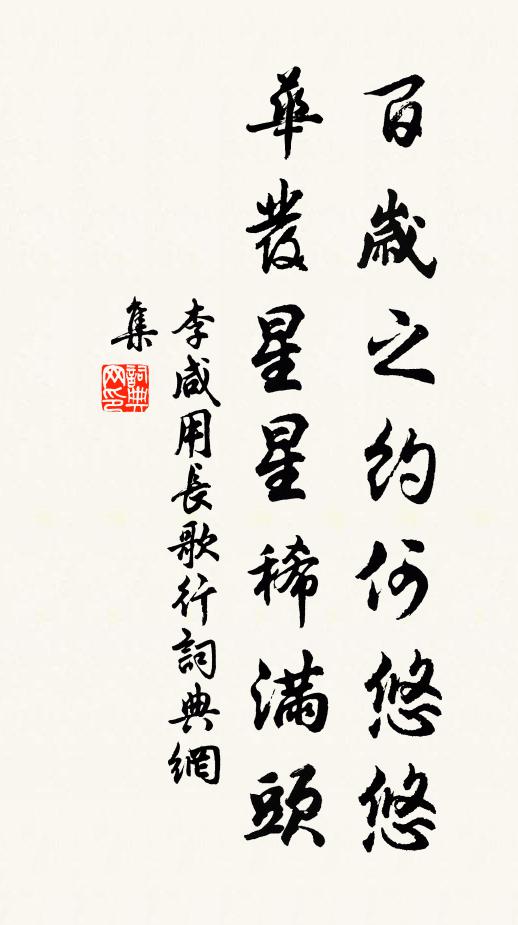 百歲之約何悠悠
華發星星稀滿頭
李咸用長歌行詞典網
集
詞典网印